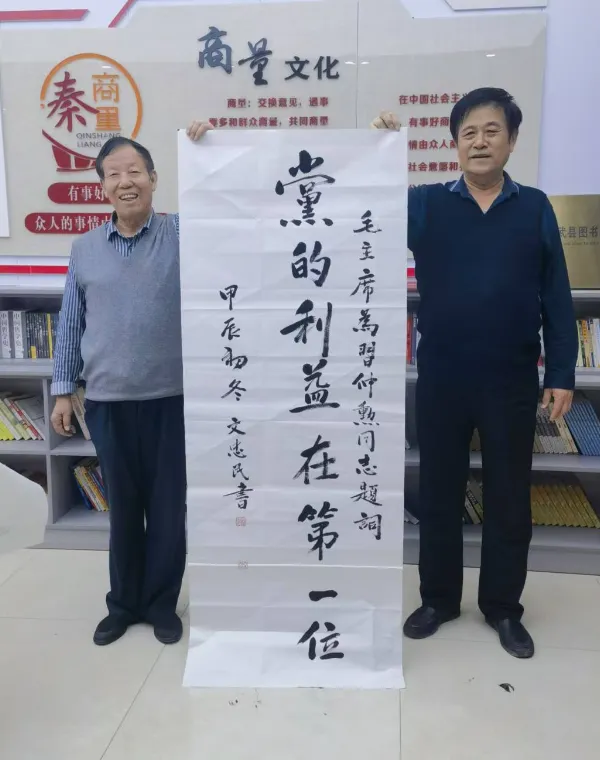 商量文化
商量：交换意见，遇事
在中国社会主
有事好商
情由众人商
社会意愿和
秦商量
QINSHANG
LIANG
有事好
众人的事情
武县图书
毛主席為習仲勲同志題詞
黨的利益在第一位
甲辰初冬 文忠民書